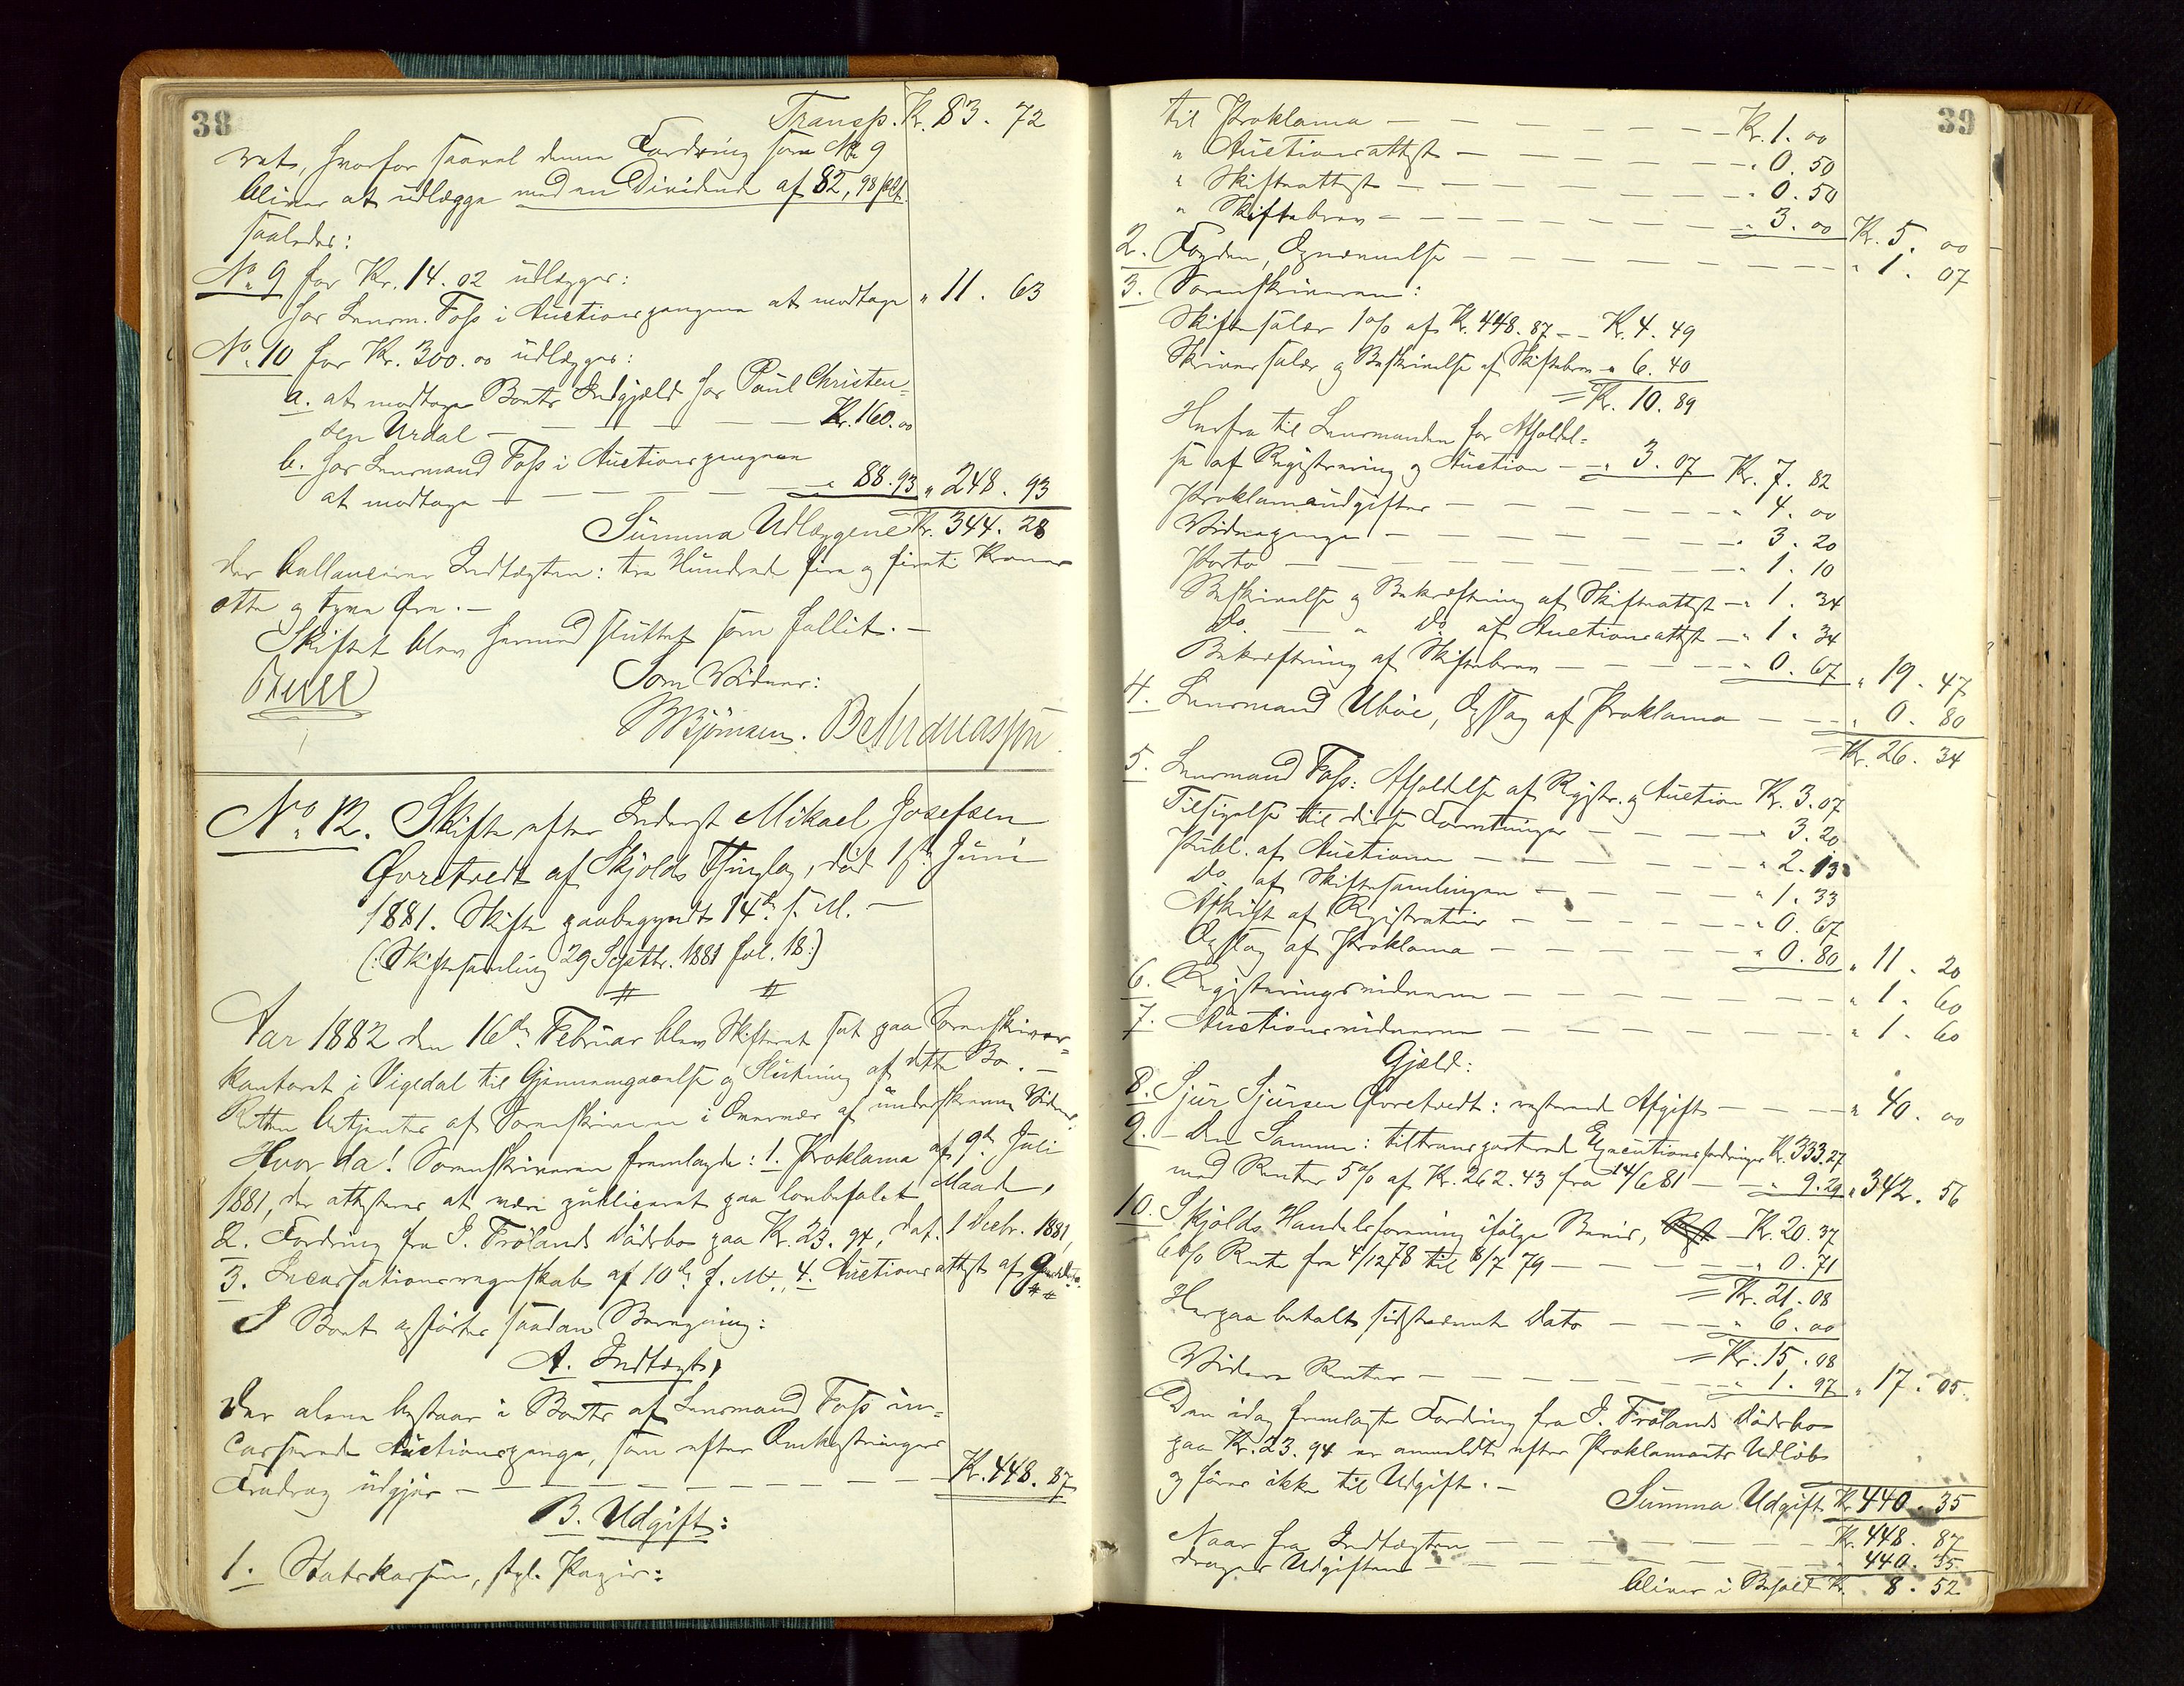 38
Transp. Kr. 83. 72
ret, hvorfor saavel denne Fordring som No 9
bliver at udlægge med en Dividende af 82,98 pCt.
saaledes:
No. 9 for Kr. 14.02 udlægges:
hos Lensm. Foss i Auctionspengene at modtage " 11. 63
No. 10 for Kr. 300.00 udlægges:
a. at modtage Boets Indgjæld hos Poul Christen-
sen Urdal — — — Kr. 160.00
b. hos Lensmand Foss i Auctionspengene
at modtage — — — " 88.93 " 248. 93
Summa Udlæggene Kr. 344. 28
der ballancerer Indtægten: tre Hundrede fire og firti Kroner
otte og tyve Øre. —
Skiftet blev hermed sluttet som fallit. —
Som Vidner:
No. 12. Skifte efter Inderst Mikael Josefsen
Øvretvedt af Skjolds Thinglag, død 1ste Juni
1881. Skifte paabegyndt 14de s. M. —
(: Skiftesamling 29 Septbr. 1881 fol. 18:)
Aar 1882 den 16de Februar blev Skifteret sat paa Sorenskriver-
kontoret i Vigedal til Gjennemgaaelse og Slutning af dette Bo. —
Retten betjentes af Sorenskriveren i Overvær af underskrevne Vidner.
Hvor da! Sorenskriveren fremlagde: 1. Proklama af 9de Juli
1881, der attesteres at være publiceret paa lovbefalet Maade,
2. Fordring fra J. Frølands Dødsbo paa Kr. 23.94, dat. 1 Decbr. 1881,
3. Incassationsregnskab af 10de d. M., 4. Auctionsattest af
I Boet opførtes saadan Beregning:
A. Indtægt,
der alene bestaar i Boets af Lensmand Foss in-
casserede Auctionspenge, som efter Omkostningers
Fradrag udgjør — — — Kr. 448. 87
B. Udgift:
1. Statskassen, stpl. Papir:
39
til Proklama — — — Kr. 1. 00
" Auctionsattest — — — " 0. 50
" Skifteattest — — — " 0. 50
" Skiftebrev — — — " 3. 00 Kr. 5. 00
2. Fogden, Opnævnelse — — — " 1. 07
3. Sorenskriveren:
Skiftesalær 1 o/o af Kr. 448.87 — Kr. 4. 49
Skriversalær og Beskrivelse af Skiftebrev " 6. 40
= Kr. 10. 89
Herfra til Lensmanden for Afholdel-
se af Registrering og Auction — " 3. 07 Kr. 7. 82
Proklamaudgifter — — — " 4. 00
Vidnepenge — — — " 3. 20
Porto — — — " 1. 10
Beskrivelse og Bekræftning af Skifteattest — " 1. 34
Do. — " Do. af Auctionsattest — " 1. 34
Bekræftning af Skiftebrev — — — " 0. 67 " 19. 47
4. Lensmand Ubøe, Opslag af Proklama — — " 0. 80
= Kr. 26. 34
5. Lensmand Foss: Afholdelse af Registr. og Auction Kr. 3. 07
Tilsigelse til disse Forretninger — — " 3. 20
Publ. af Auctionen — — — " 2. 13
Do. af Skiftesamlingen — — " 1. 33
Afskrift af Registrering — — " 0. 67
Opslag af Proklama — — — " 0. 80 " 11. 20
6. Registreringsvidnerne — — — " 1. 60
7. Auctionsvidnerne — — — " 1. 60
Gjæld:
8. Sjur Sjursen Øvretvedt: resterende Afgift — — " 40. 00
9. — Den Samme: tiltransporterede Executionsfordringer Kr. 333.27
med Renter 5 o/o af Kr. 262.43 fra 14/6 81 — " 9.29 " 342. 56
10. Skjolds Handelsforening ifølge Bevis, Kr. 20. 37
6 o/o Rente fra 4/12 78 til 8/7 79 — — " 0. 71
= Kr. 21. 08
Herpaa betalt sidstnævnte Dato — — " 6. 00
= Kr. 15. 08
Videre Renter — — — " 1. 97 " 17. 05
Den idag fremlagte Fordring fra J. Frølands Dødsbo
paa Kr. 23.94 er anmeldt efter Proklamaets Udløb
og føres ikke til Udgift. —
Summa Udgift Kr. 440. 35
Naar fra Indtægten — — — Kr. 448. 87
drages Udgiften — — — " 440. 35
bliver i Behold Kr. 8. 52